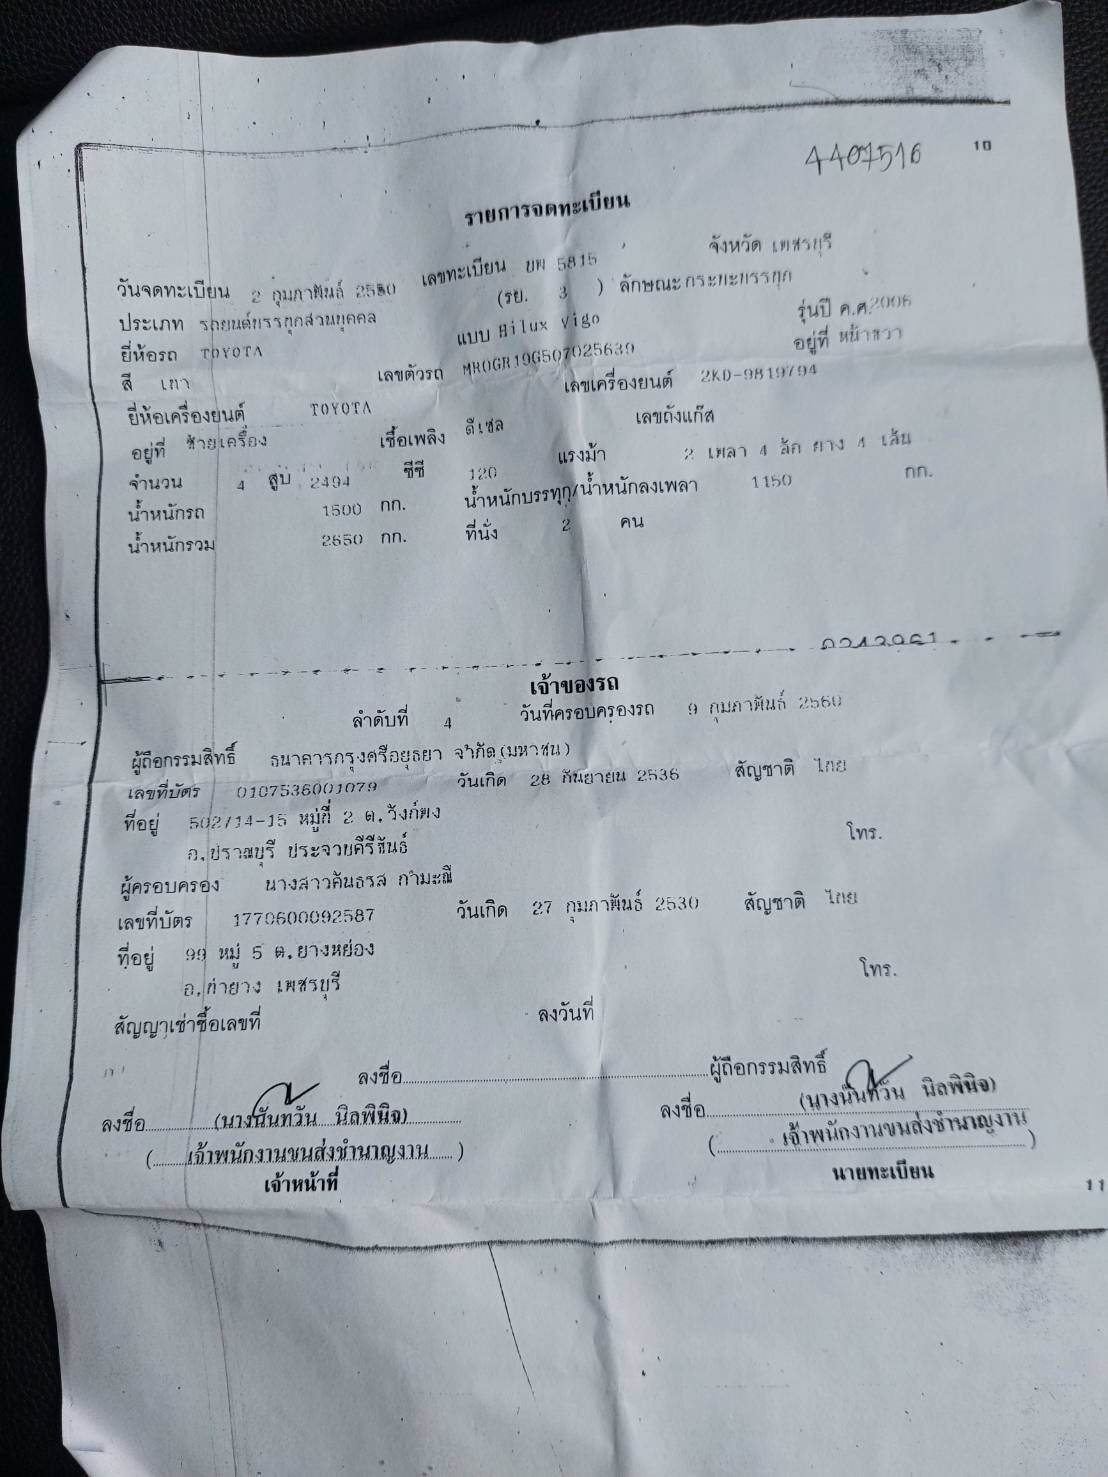 4407516 10
รายการจดทะเบียน
วันจดทะเบียน 2 กุมภาพันธ์ 2550 เลขทะเบียน บพ 5815 จังหวัด เพชรบุรี
ประเภท รถยนต์บรรทุกส่วนบุคคล (รย. 3 ) ลักษณะ กระบะบรรทุก
ยี่ห้อรถ TOYOTA แบบ Hilux Vigo รุ่นปี ค.ศ. 2006
สี เทา เลขตัวรถ MR0GR19G507025639 อยู่ที่ หน้าขวา
ยี่ห้อเครื่องยนต์ TOYOTA เลขเครื่องยนต์ 2KD-9819794
อยู่ที่ ซ้ายเครื่อง เชื้อเพลิง ดีเซล เลขถังแก๊ส
จำนวน 4 สูบ 2494 ซีซี 120 แรงม้า 2 เพลา 4 ล้อ ยาง 4 เส้น
น้ำหนักรถ 1500 กก. น้ำหนักบรรทุก/น้ำหนักลงเพลา 1150 กก.
น้ำหนักรวม 2650 กก. ที่นั่ง 2 คน
เจ้าของรถ
ลำดับที่ 4 วันที่ครอบครองรถ 9 กุมภาพันธ์ 2560
ผู้ถือกรรมสิทธิ์ ธนาคารกรุงศรีอยุธยา จำกัด(มหาชน)
เลขที่บัตร 0107536001079 วันเกิด 28 กันยายน 2536 สัญชาติ ไทย
ที่อยู่ 502/14-15 หมู่ที่ 2 ต.วังก์พง
อ.ปราณบุรี ประจวบคีรีขันธ์ โทร.
ผู้ครอบครอง นางสาวคันธรส กำมะณี
เลขที่บัตร 1770600092587 วันเกิด 27 กุมภาพันธ์ 2530 สัญชาติ ไทย
ที่อยู่ 99 หมู่ 5 ต.ยางหย่อง
อ.ท่ายาง เพชรบุรี โทร.
สัญญาเช่าซื้อเลขที่ ลงวันที่
ลงชื่อ ผู้ถือกรรมสิทธิ์
ลงชื่อ (นางนันทวัน นิลพินิจ) ลงชื่อ (นางนันทวัน นิลพินิจ)
( เจ้าพนักงานขนส่งชำนาญงาน ) ( เจ้าพนักงานขนส่งชำนาญงาน )
เจ้าหน้าที่ นายทะเบียน
11